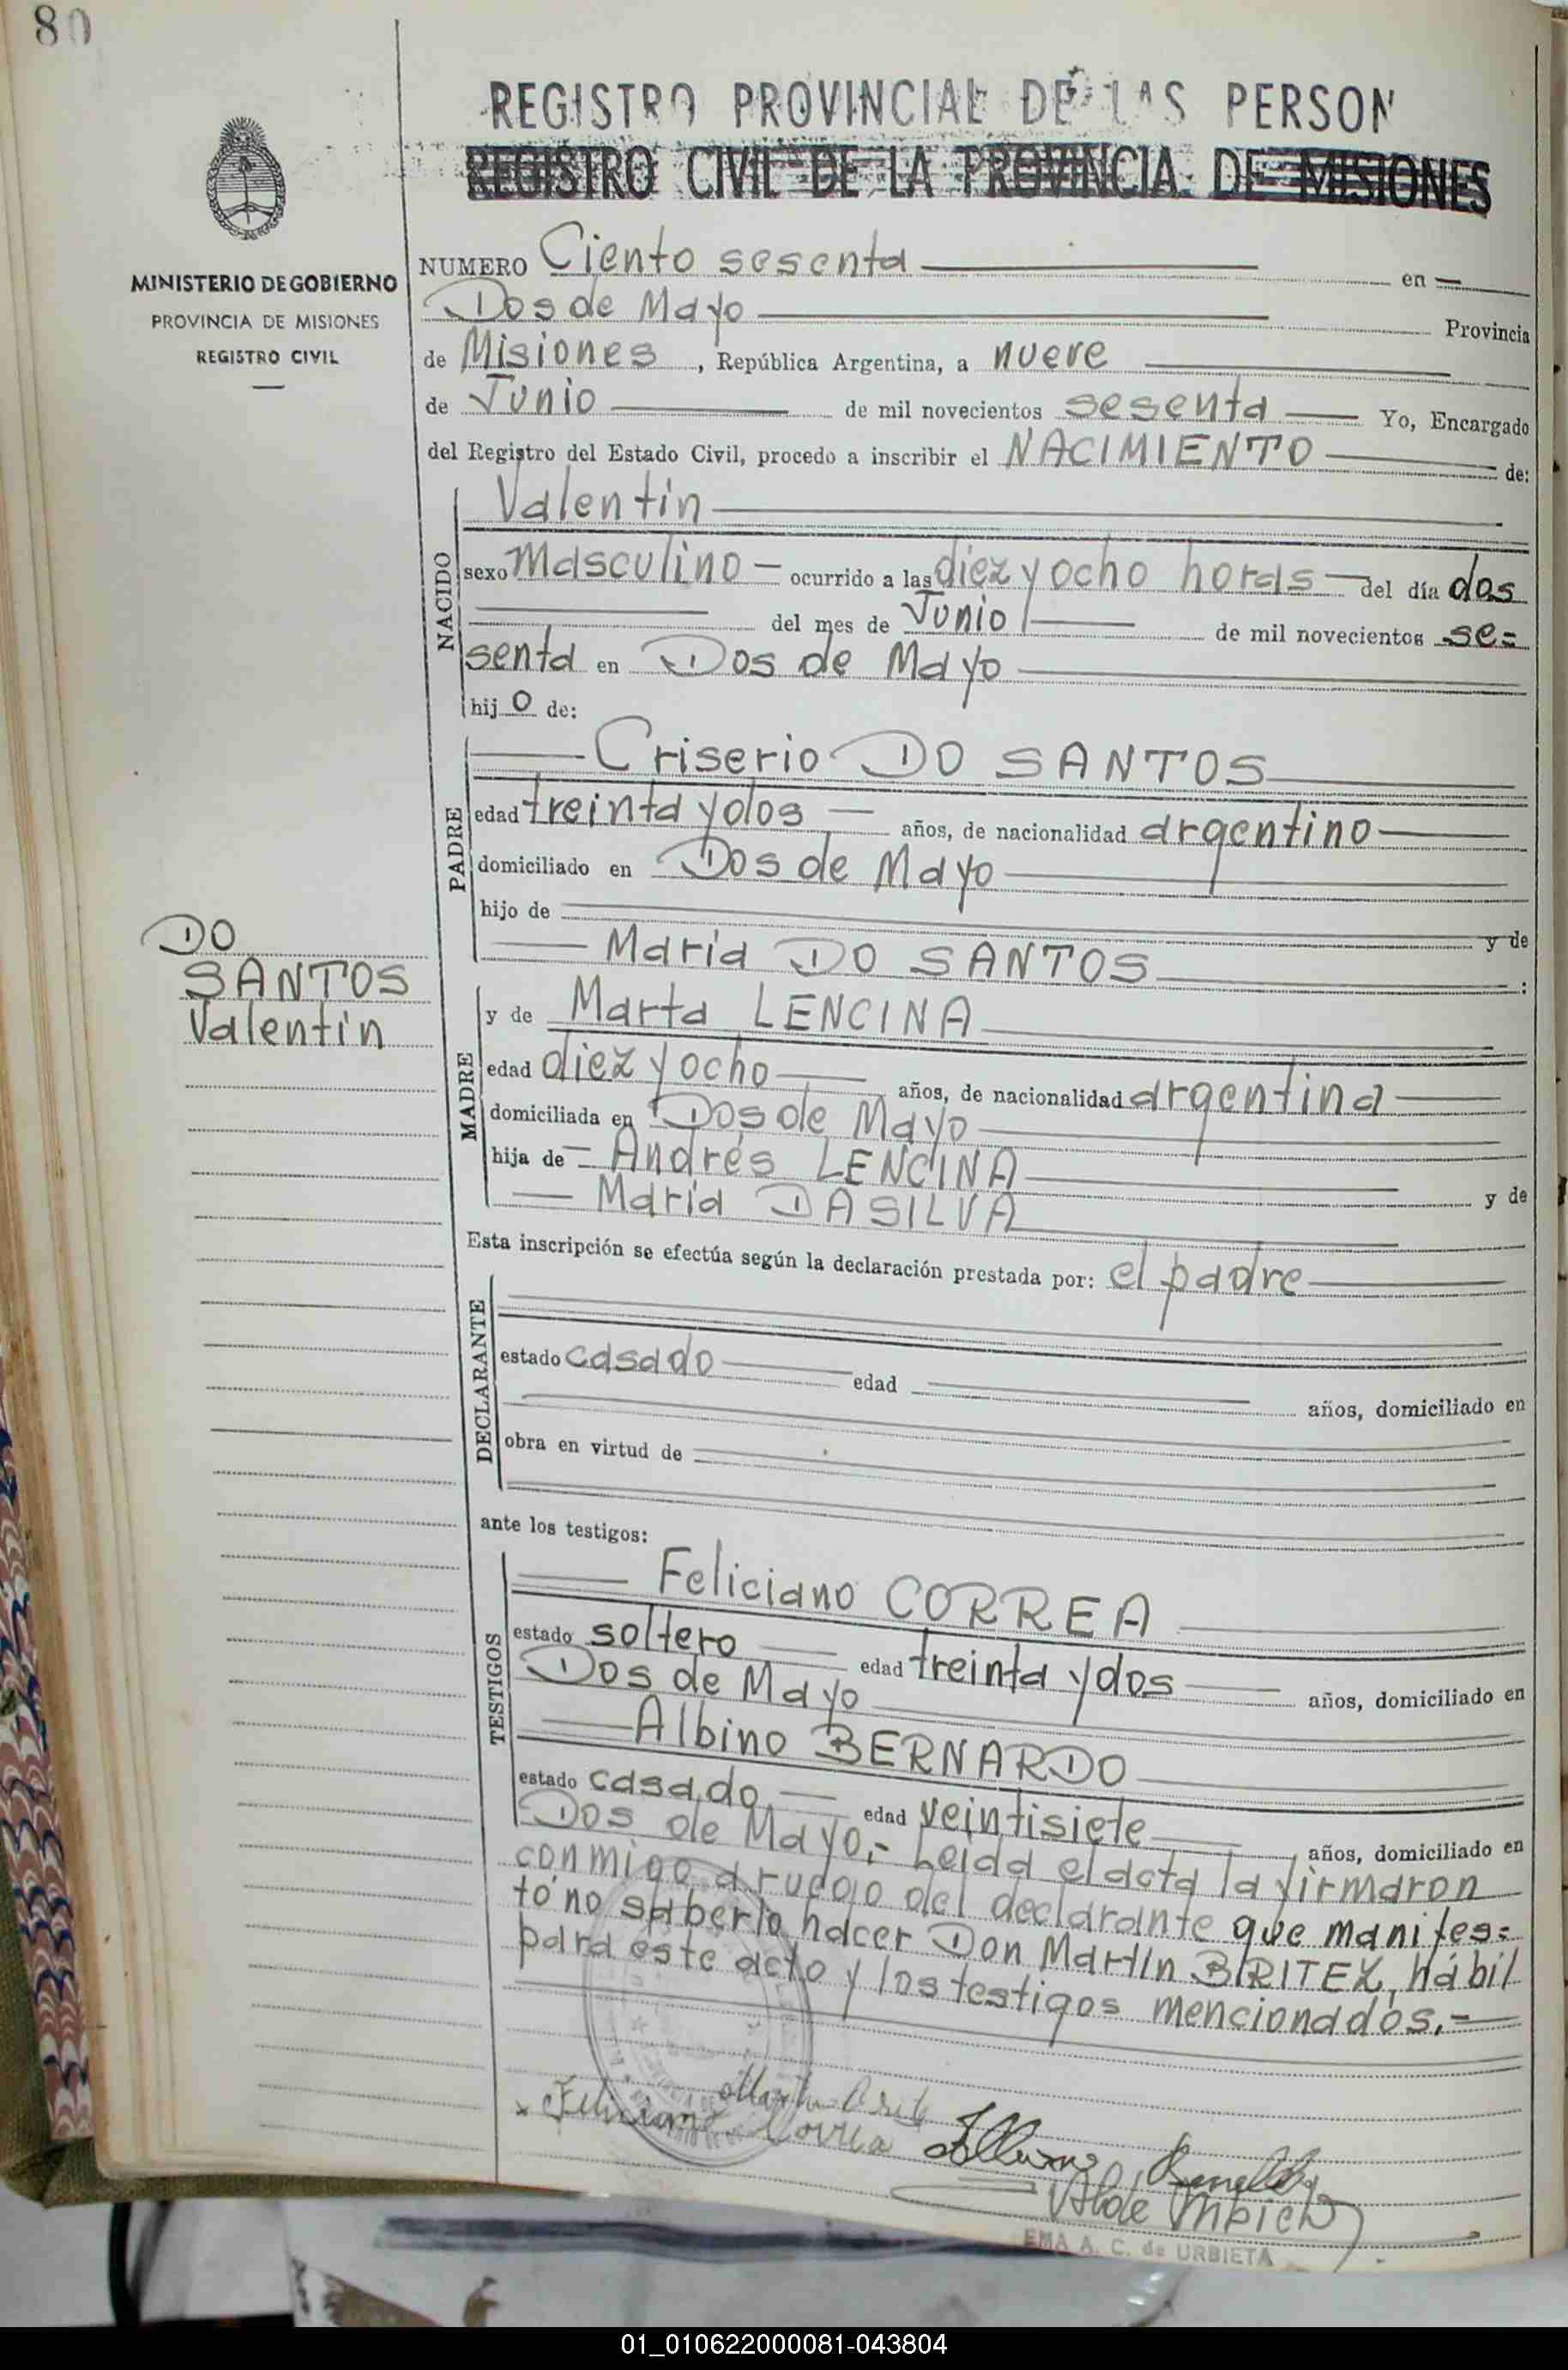 80
REGISTRO PROVINCIAL DE LAS PERSON
REGISTRO CIVIL DE LA PROVINCIA DE MISIONES
MINISTERIO DE GOBIERNO
PROVINCIA DE MISIONES
REGISTRO CIVIL
NUMERO Ciento sesenta en
Dos de Mayo Provincia
de Misiones, República Argentina, a nueve
de Junio de mil novecientos sesenta Yo, Encargado
del Registro del Estado Civil, procedo a inscribir el NACIMIENTO de:
NACIDO
Valentín
sexo Masculino ocurrido a las diez y ocho horas del día dos
del mes de Junio de mil novecientos se=
senta en Dos de Mayo
hijo de:
PADRE
Criserio DO SANTOS
edad treinta y dos años, de nacionalidad argentino
domiciliado en Dos de Mayo
hijo de y de
María DO SANTOS :
DO
SANTOS
Valentín
MADRE
y de Marta LENCINA
edad diez y ocho años, de nacionalidad argentina
domiciliada en Dos de Mayo
hija de Andrés LENCINA y de
María DASILVA
Esta inscripción se efectúa según la declaración prestada por: el padre
DECLARANTE
estado casado edad años, domiciliado en
obra en virtud de
ante los testigos:
TESTIGOS
Feliciano CORREA
estado soltero edad treinta y dos años, domiciliado en
Dos de Mayo
Albino BERNARDO
estado casado edad veintisiete años, domiciliado en
Dos de Mayo.- Leida el acta la firmaron
conmigo a ruego del declarante que manifes=
tó no saberlo hacer Don Martín BRITEZ, hábil
para este acto y los testigos mencionados.-
Feliciano Correa
EMA A. C. de URBIETA
01_010622000081-043804